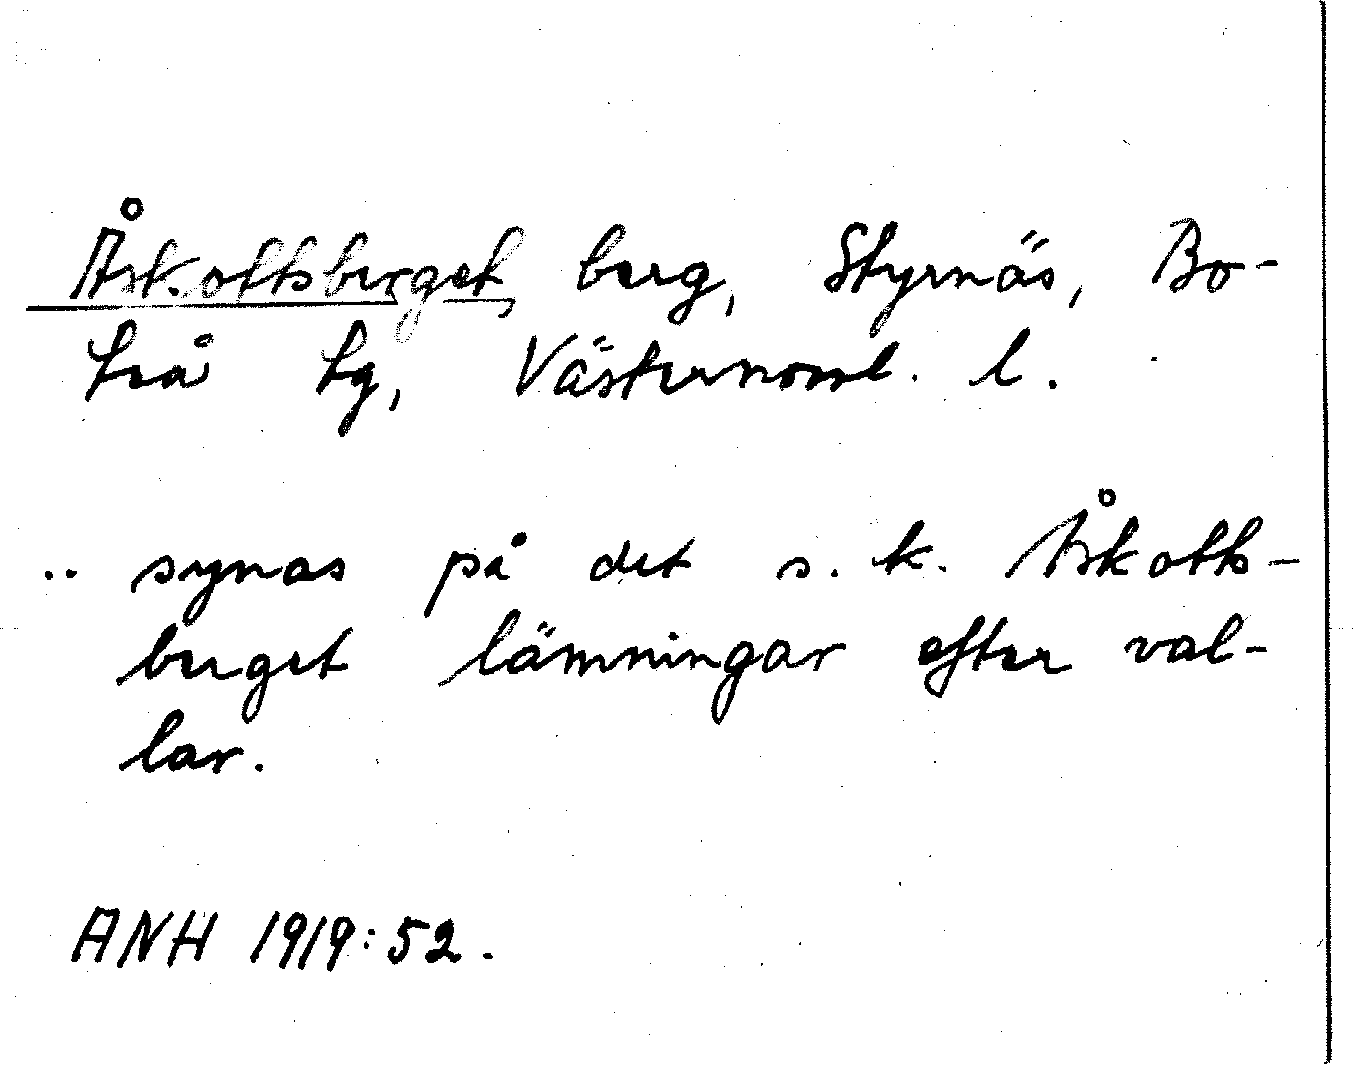 Åskottsberget berg, Styrnäs, Bo-
teå tg, Västernorrl. l.
.. synas på det s. k. Åskotts-
berget lämningar efter val-
lar.
ANH 1919:52.